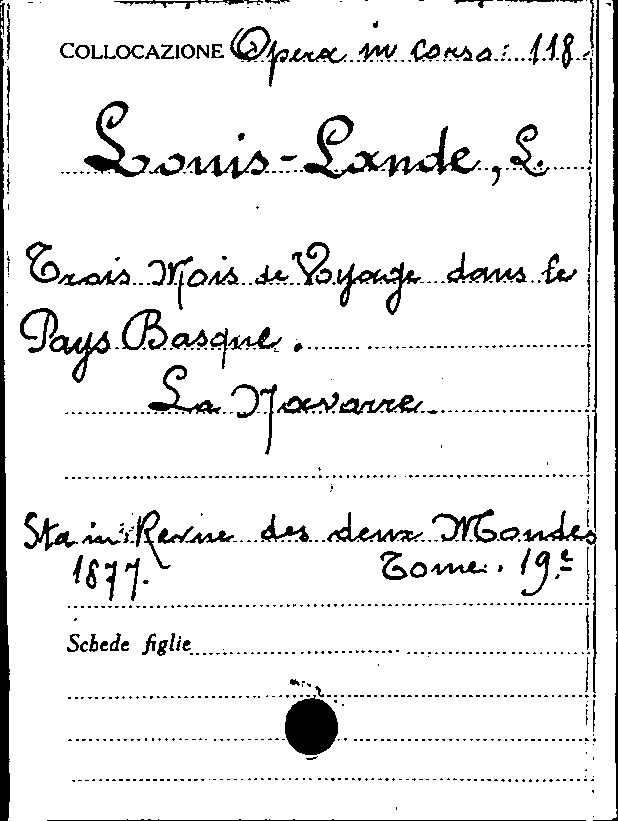 COLLOCAZIONE Opera in corso: 118.
Louis-Lande, L.
Trois Mois de Voyage dans le
Pays Basque.
La Navarre.
Sta in: Revue des deux Mondes
1877. Tome. 19.e
Schede figlie